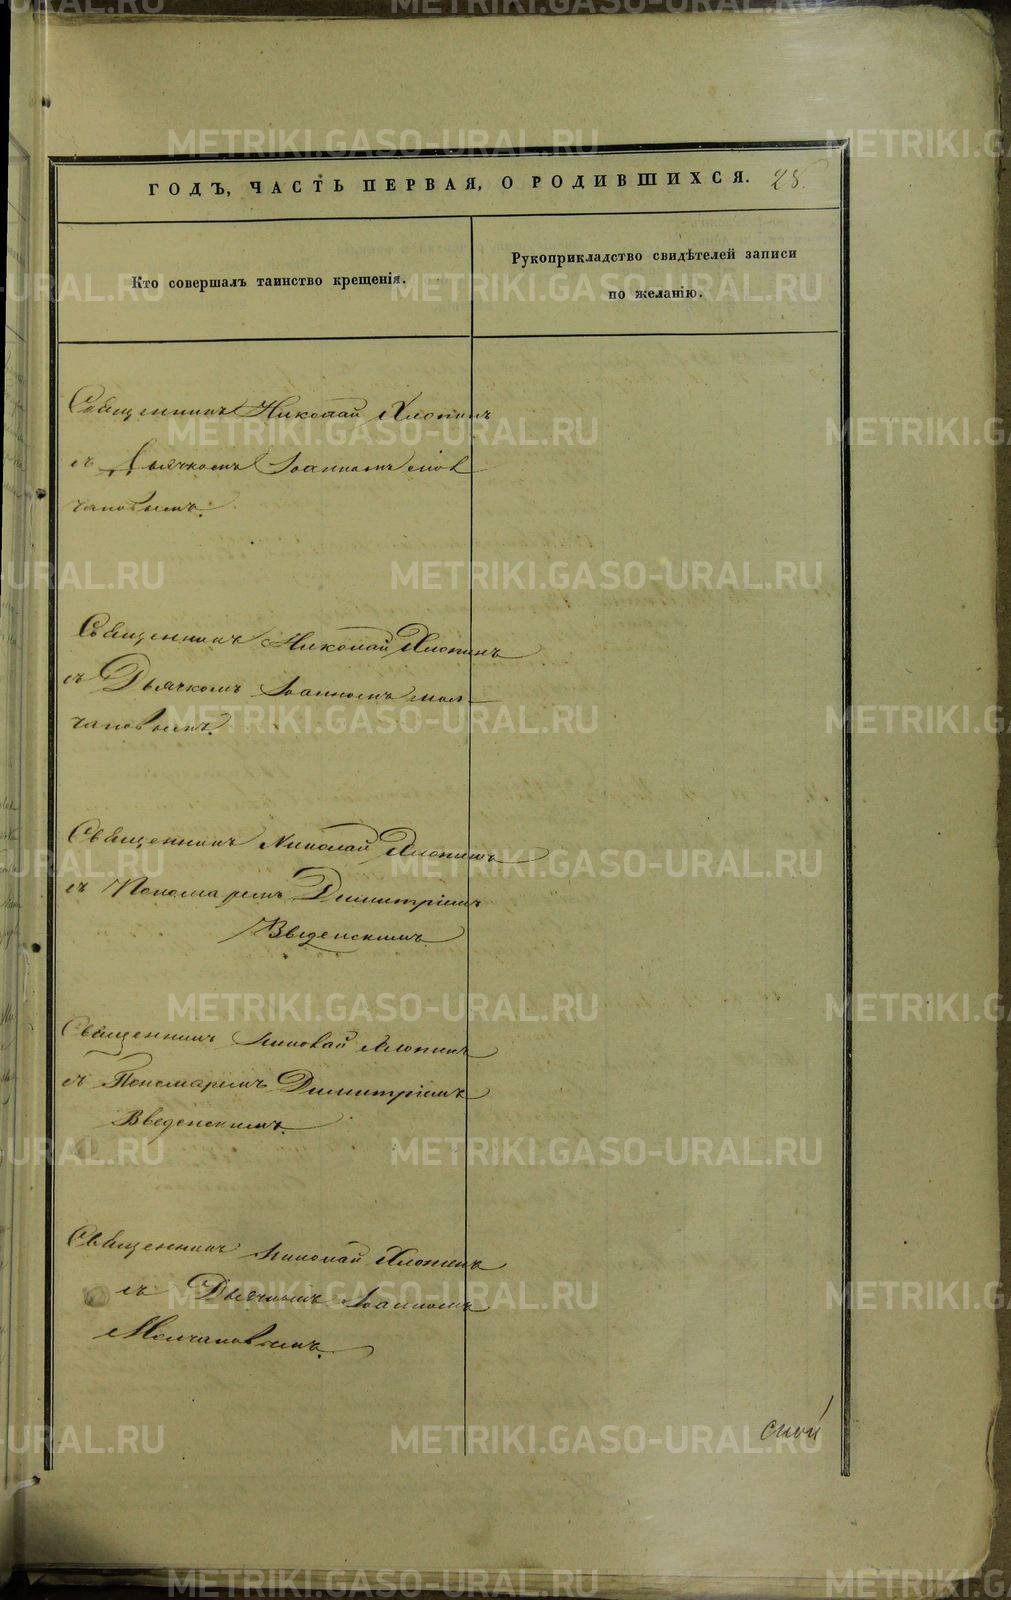 ГОДЪ, ЧАСТЬ ПЕРВАЯ, О РОДИВШИХСЯ. 28.
Кто совершалъ таинство крещенія.
Рукоприкладство свидѣтелей записи
по желанію.
Священникъ Николай Хлопинъ
съ Дьячкомъ Іоанномъ Мол
чановымъ.
Священникъ Николай Хлопинъ
съ Дьячкомъ Іоанномъ Мол-
чановымъ.
Священникъ Николай Хлопинъ
съ Пономаремъ Димитріемъ
Введенскимъ.
Священникъ Николай Хлопинъ
съ Пономаремъ Димитріемъ
Введенскимъ.
Священникъ Николай Хлопинъ
съ Дьячкомъ Іоанномъ
Молчановымъ.
METRIKI.GASO-URAL.RU